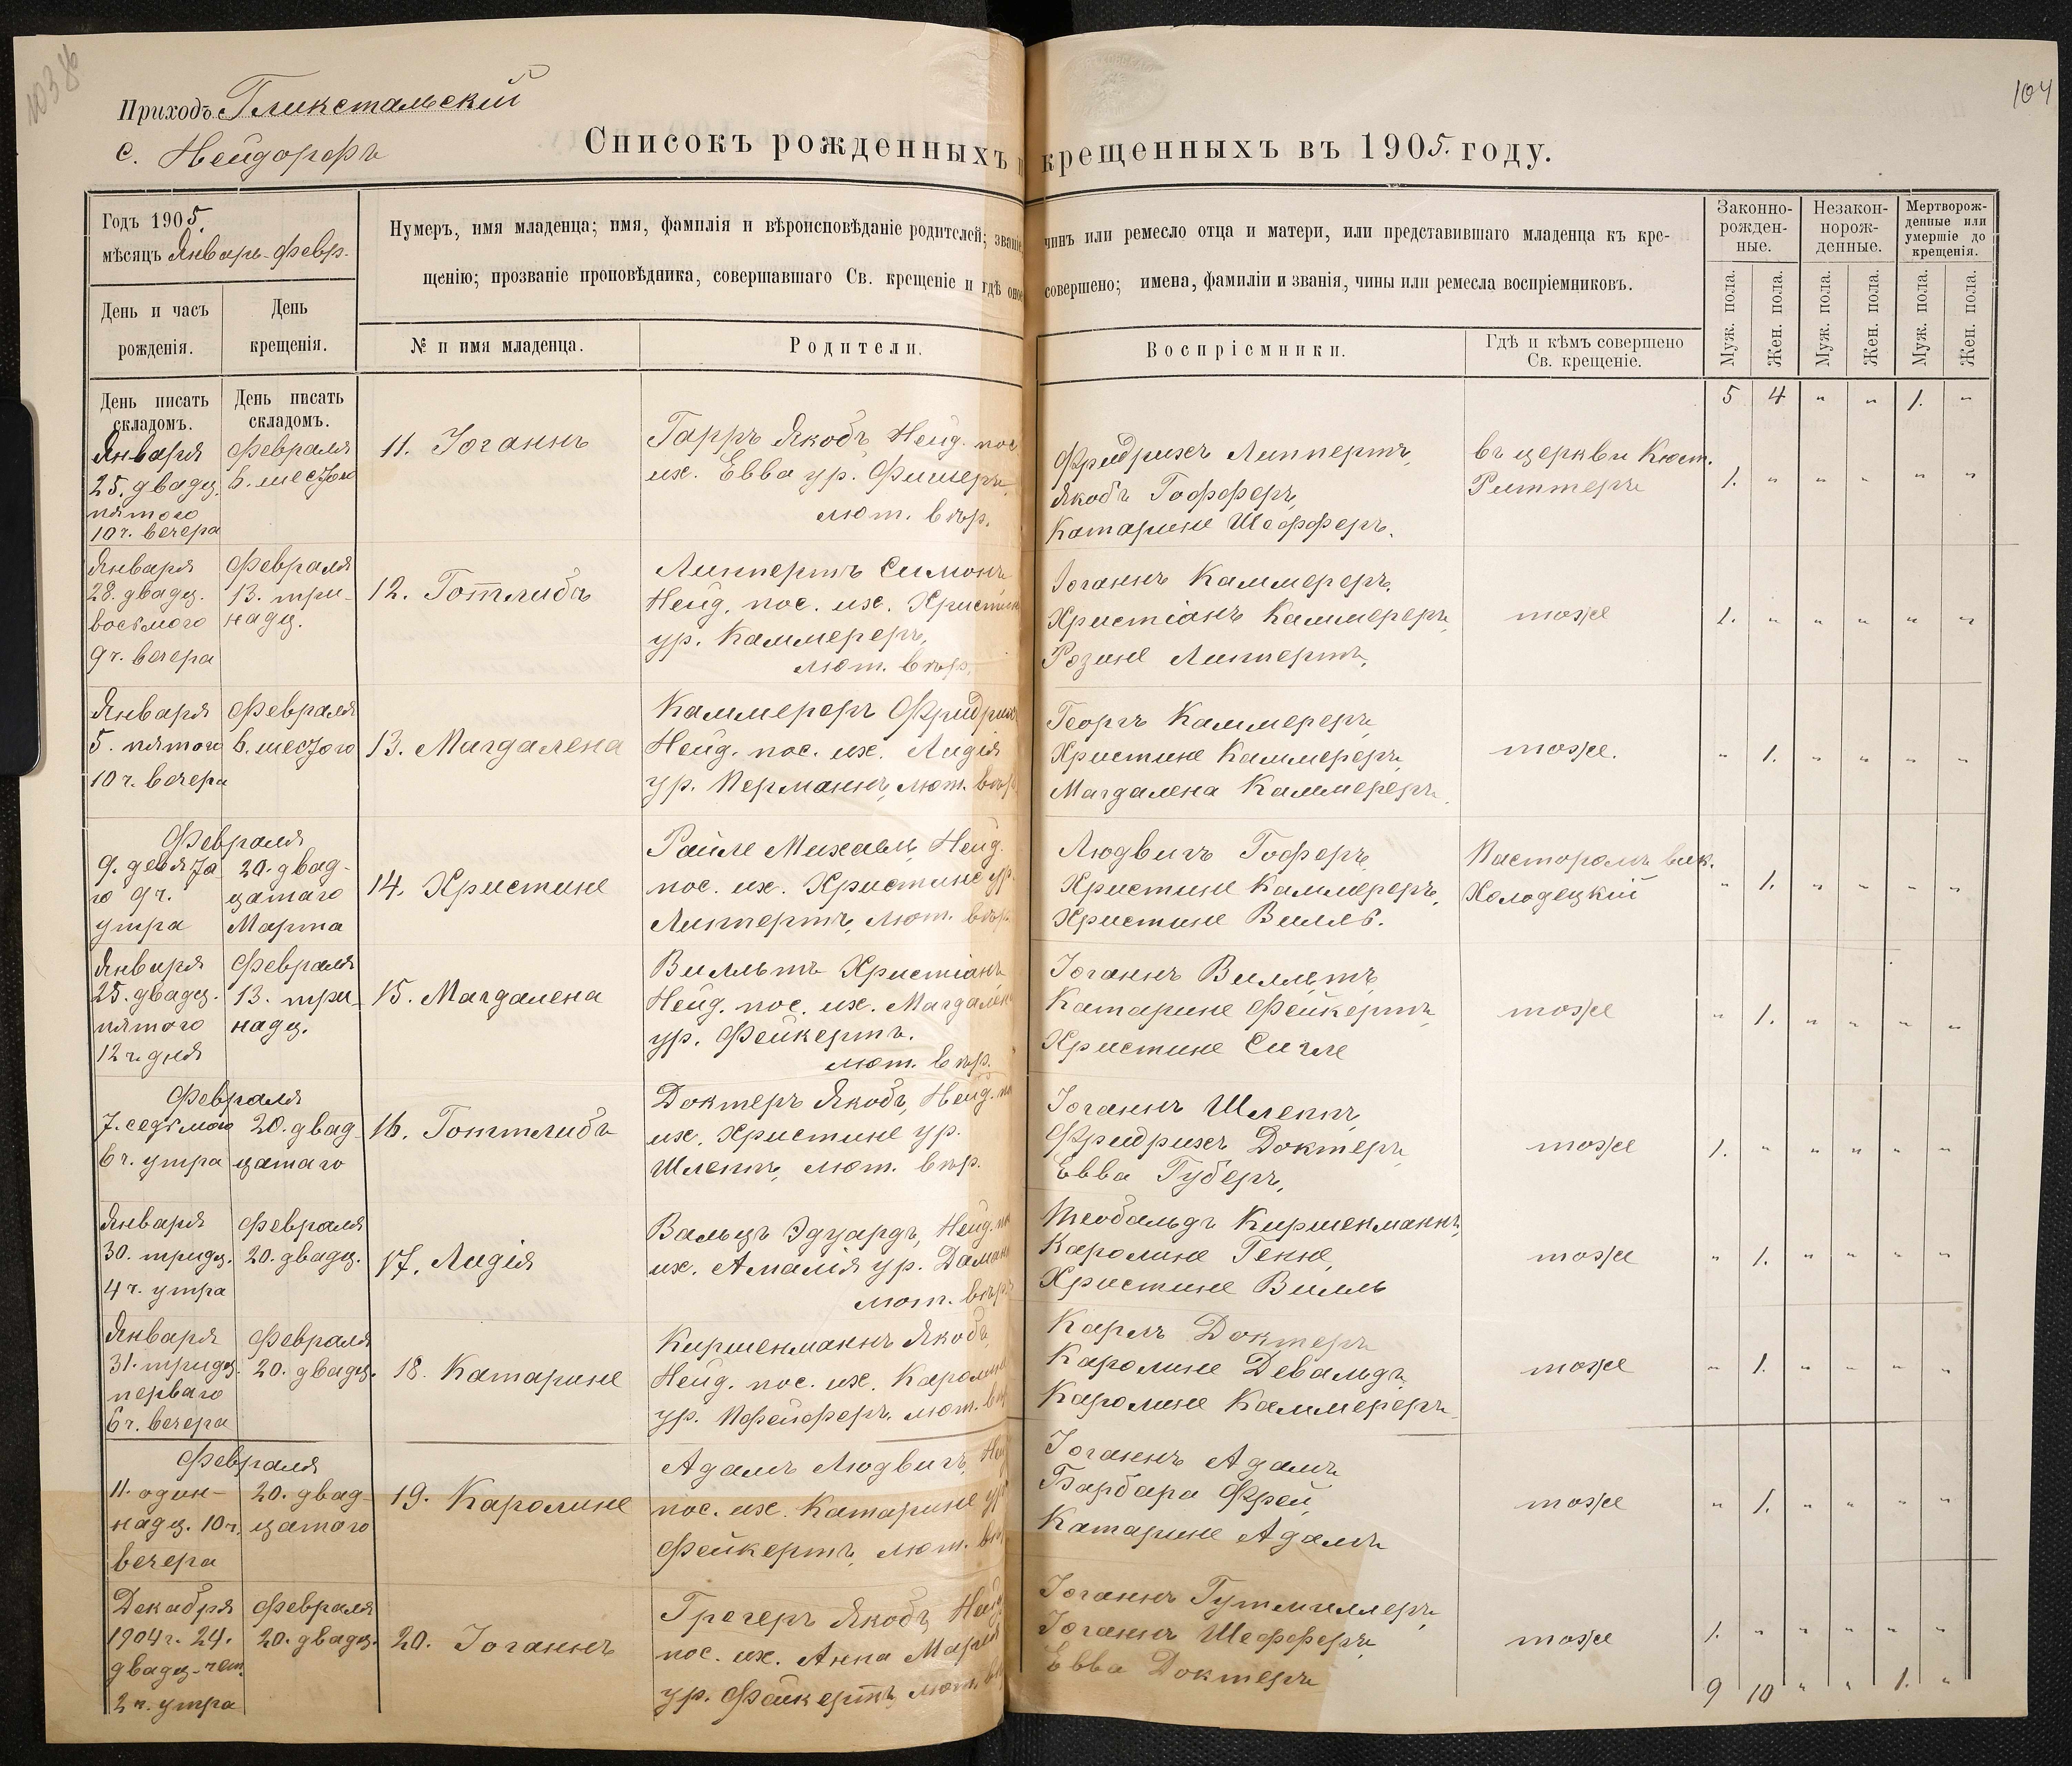 103 об
104
Приходъ Гликстальскій
с. Нейдорфъ
Списокъ рожденныхъ и крещенныхъ въ 1905. году.
Годъ 1905.
мѣсяцъ Январь-Февр.
День и часъ рожденія.
День крещенія.
Нумеръ, имя младенца; имя, фамилія и вѣроисповѣданіе родителей; званіе, чинъ или ремесло отца и матери, или представившаго младенца къ кре-
щенію; прозваніе проповѣдника, совершавшаго Св. крещеніе и гдѣ оное совершено; имена, фамиліи и званія, чины или ремесла воспріемниковъ.
№ и имя младенца.
Родители.
Воспріемники.
Гдѣ и кѣмъ совершено
Св. крещеніе.
Законно-
рожден-
ные.
Незакон-
норож-
денные.
Мертворож-
денные или
умершіе до
крещенія.
Муж. пола.
Жен. пола.
Муж. пола.
Жен. пола.
Муж. пола.
Жен. пола.
День писать
складомъ.
День писать
складомъ.
5 4 " " 1. "
Января
25. двадц.
пятого
10 ч. вечера
Февраля
6. шестого
11. Іоганнъ
Гарръ Якобъ Нейд. пос
их. Евва ур. Фишеръ
лют. вѣр.
Фридрихъ Липпертъ,
Якобъ Гофферъ,
Катарине Шефферъ.
въ церкви Кюст.
Риттеръ
1. " " " " "
Января
28. двадц.
восьмого
9 ч. вечера
Февраля
13. три-
надц.
12. Готтлибъ
Липпертъ Симонъ
Нейд. пос. их. Христине
ур. Каммереръ,
лют. вѣр.
Іоганнъ Каммереръ,
Христіанъ Каммереръ,
Розине Липпертъ,
тоже
1. " " " " "
Января
5. пятого
10 ч. вечера
Февраля
6. шестого
13. Магдалена
Каммереръ Фридрихъ
Нейд. пос. их. Лидія
ур. Перманнъ, лют. вѣр.
Георгъ Каммереръ,
Христине Каммереръ,
Магдалена Каммереръ.
тоже.
" 1. " " " "
Февраля
9. девята
го 9 ч.
утра
20. двад-
цатаго
Марта
14. Христине
Райле Михаель, Нейд.
пос. их. Христине ур.
Липпертъ, лют. вѣр.
Людвигъ Гоферъ,
Христине Каммереръ,
Христине Вилль.
Пасторомъ вик.
Холодецкій
" 1. " " " "
Января
25. двадц.
пятого
12 ч. дня
Февраля
13. три-
надц.
15. Магдалена
Вилльтъ Христіанъ
Нейд. пос. их. Магдалена
ур. Фейкертъ.
лют. вѣр.
Іоганнъ Виллътъ,
Катарине Фейкертъ,
Христине Сигле
тоже
" 1. " " " "
Февраля
7. седьмого
6 ч. утра
20. двад
цатаго
16. Готтлибъ
Доктеръ Якобъ, Нейд. по
их. Христине ур.
Шлеппъ, лют. вѣр.
Іоганнъ Шлеппъ,
Фридрихъ Доктеръ,
Евва Губеръ,
тоже
1. " " " " "
Января
30. тридц.
4 ч. утра
Февраля
20. двадц.
17. Лидія
Вальцъ Эдуардъ, Нейд. по
их. Амалія ур. Даманъ
лют. вѣр.
Теобальдъ Киршенманнъ,
Каролине Генне,
Христине Вилль
тоже
" 1. " " " "
Января
31. тридц.
перваго
6 ч. вечера
Февраля
20. двадц.
18. Катарине
Киршенманнъ Якобъ,
Нейд. пос. их. Каролине
ур. Пфейферъ, лют. вѣр
Карлъ Доктеръ
Каролине Девальдъ,
Каролине Каммереръ.
тоже
" 1. " " " "
Февраля
11. один-
надц. 10 ч.
вечера
20. двад-
цатаго
19. Каролине
Адамъ Людвигъ, Ней
пос. их. Катарине ур
Фейкертъ, лют. вѣ
Іоганнъ Адамъ,
Барбара Фрей,
Катарине Адамъ
тоже
" 1. " " " "
Декабря
1904 г. 24.
двадц-чет.
2 ч. утра
Февраля
20. двадц.
20. Іоганнъ
Грегеръ Якобъ, Нейд
пос. их. Анна Маргар
ур. Фейкертъ, лют. вѣ
Іоганнъ Гутмиллеръ,
Іоганнъ Шефферъ,
Евва Доктеръ
тоже
1. " " " " "
9 10 " " 1. "